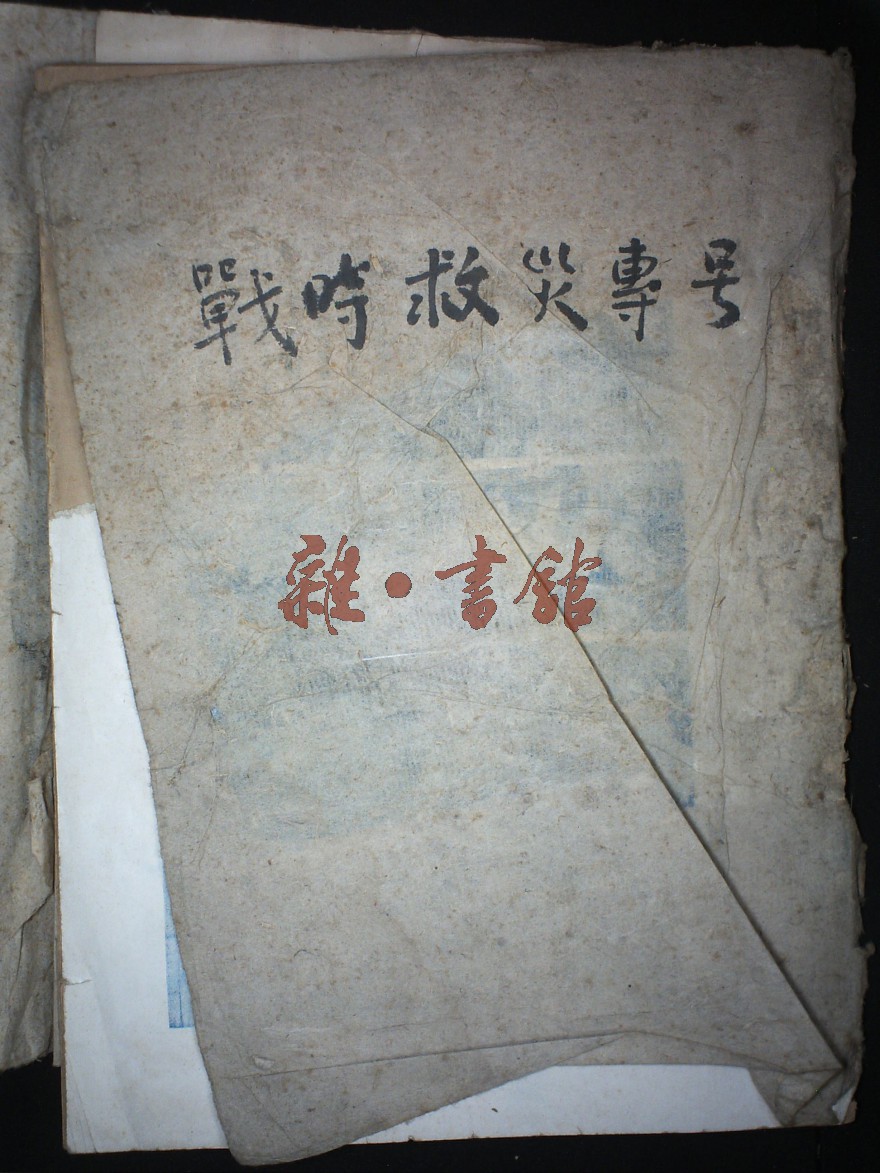 戰時救災專号
雜·書館